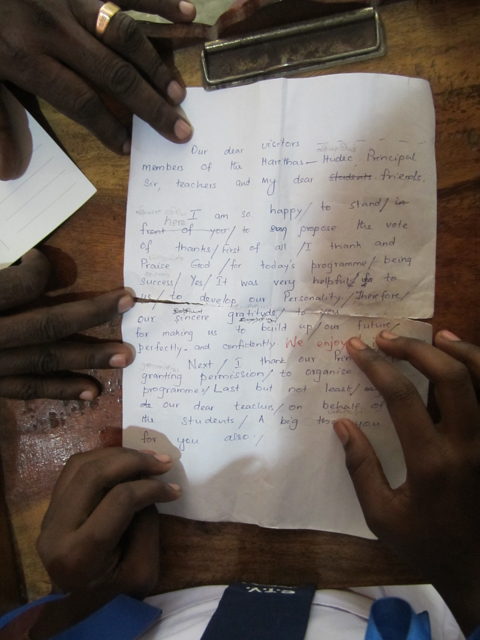 Our dear visitors
members of the Manthas- Hudec, Principal
Sir, teachers and my dear students friends.
I am so happy/ to stand/ in
here
front of you/ to say propose the vote
of thanks/ first of all/ I thank and
Praise God/ for today's programme/ being
Success/ Yes/ It was very helpful/ to
us/ to develop our Personality/ Therefore/
our sincere gratitude/ to you
for making us to build up/ our future/
perfectly and confidently. We enjoy
Next/ I thank our
granting permission/ to organise
programme/ Last but not least/
our dear teachers/ on behalf of
the students/ A big you
for you also/
S.T.V.